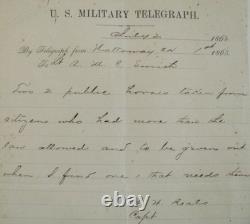 U. S. MILITARY TELEGRAPH.
July 2 1863
By Telegraph from Halloway 2d 1863.
To A. M. C. Smith
2 public horses taken from
citizens who had more than the
law allowed and to be given out
when I find one, that needs them
Capt
© worthpoint